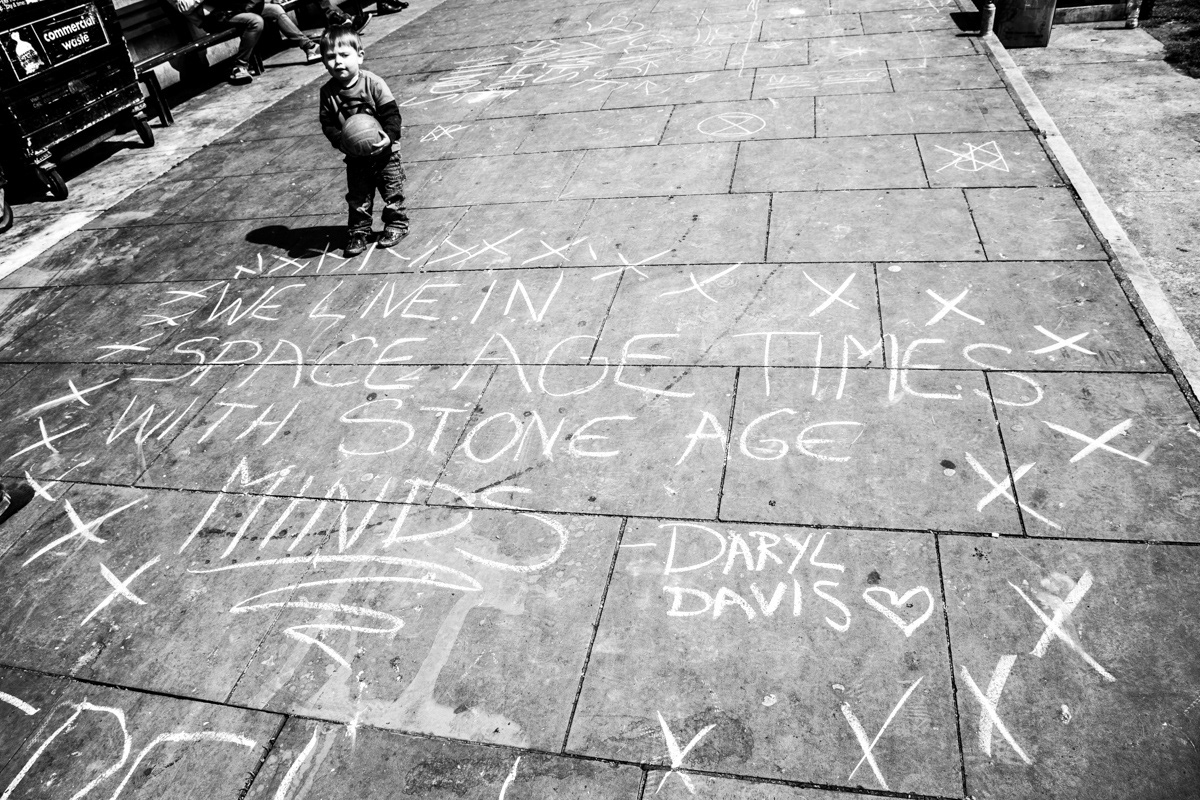 commercial
waste
WE LIVE IN
SPACE AGE TIMES
WITH STONE AGE
MINDS
-DARYL
DAVIS ♡